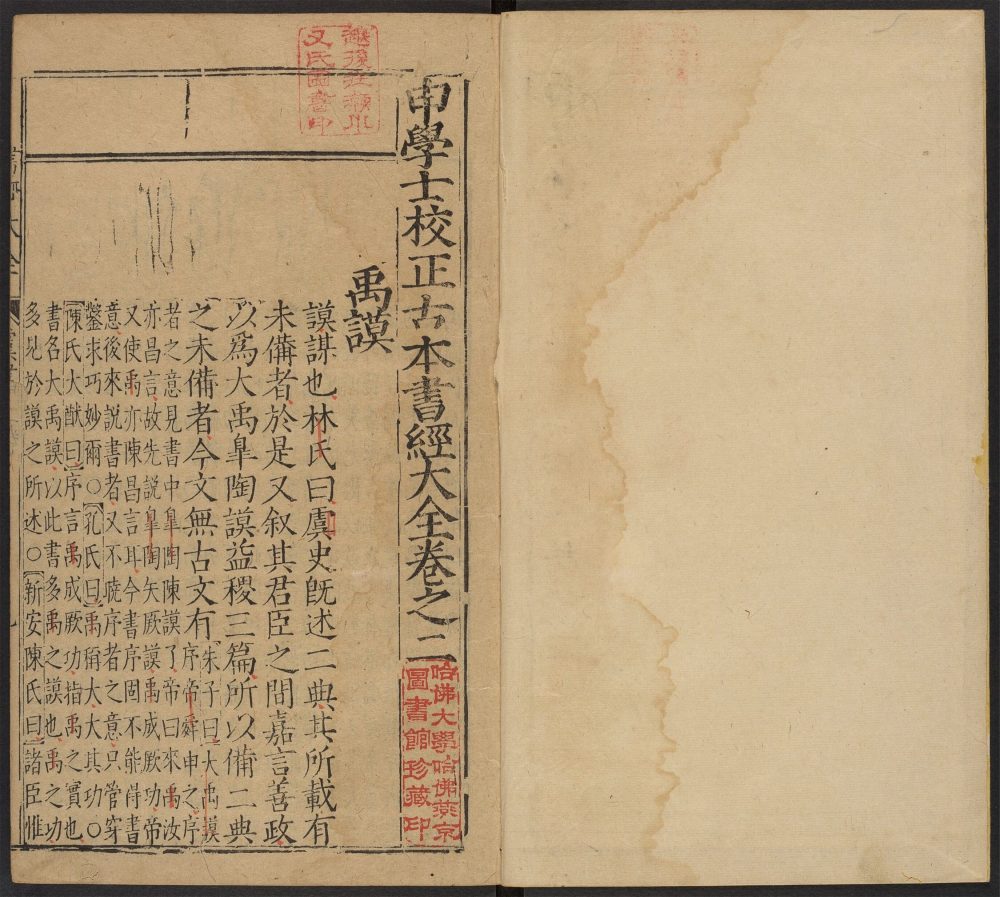 申學士校正古本書經大全卷之二
哈佛大學哈佛燕京
圖書館珍藏印
禹謨
謨謀也林氏曰虞史旣述二典其所載有
未備者於是又叙其君臣之間嘉言善政
以爲大禹皐陶謨益稷三篇所以備二典
之未備者今文無古文有
朱子曰大禹謨
序帝舜申之序
者之意見書中皐陶陳謨了帝曰來禹汝
亦昌言故先説皐陶矢厥謨禹成厥功帝
又使禹亦陳昌言耳今書序固不能得書
意後來説書者又不曉序者之意只管穿
鑿求巧妙爾○孔氏曰禹稱大大其功○
陳氏大猷曰序言禹成厥功指禹之實也
書名大禹謨以此書多禹之謨也禹之功
多見於謨之所述○新安陳氏曰諸臣惟
氏圖書印